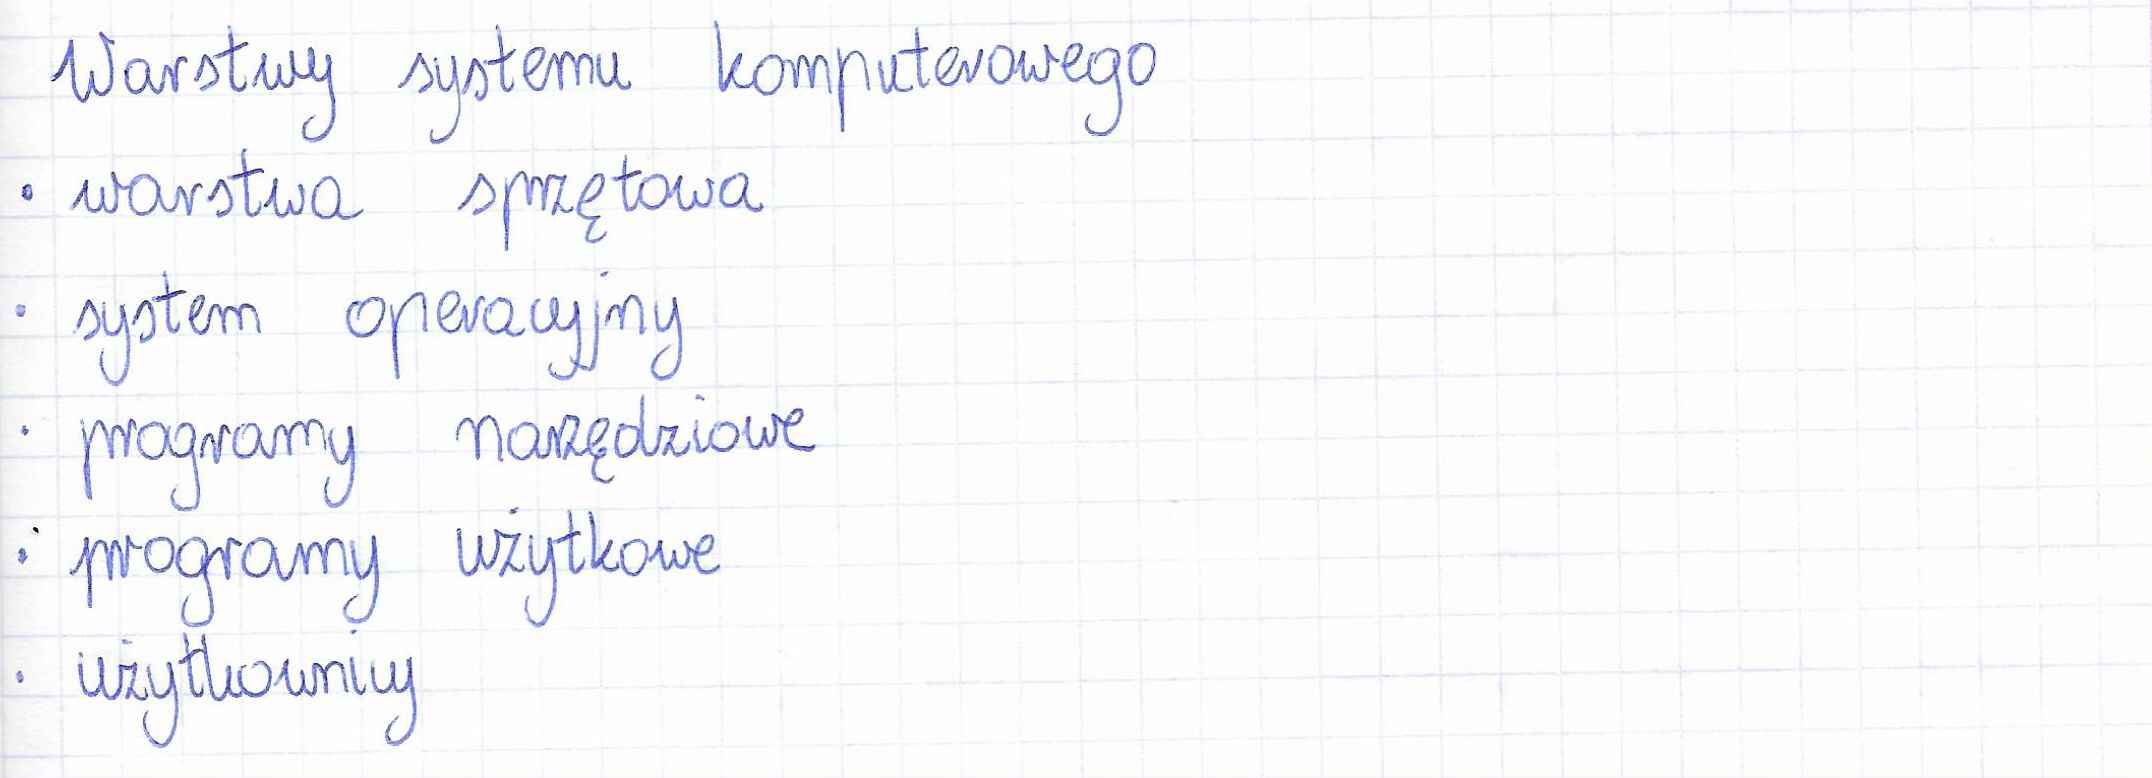 Warstwy systemu komputerowego
• warstwa sprzętowa
• system operacyjny
• programy narzędziowe
• programy użytkowe
• użytkownicy